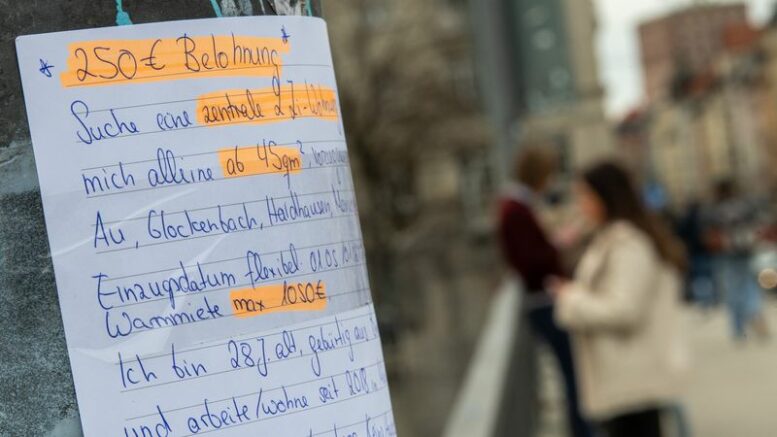 * 250 € Belohnung *
Suche eine zentrale 2 Zi-Wohnung
mich alleine ab 45qm²,
Au, Glockenbach, Haidhausen,
Einzugsdatum flexibel 01.05
Warmmiete max 1050€
Ich bin 28 J. alt, gebürtig aus
und arbeite/wohne seit